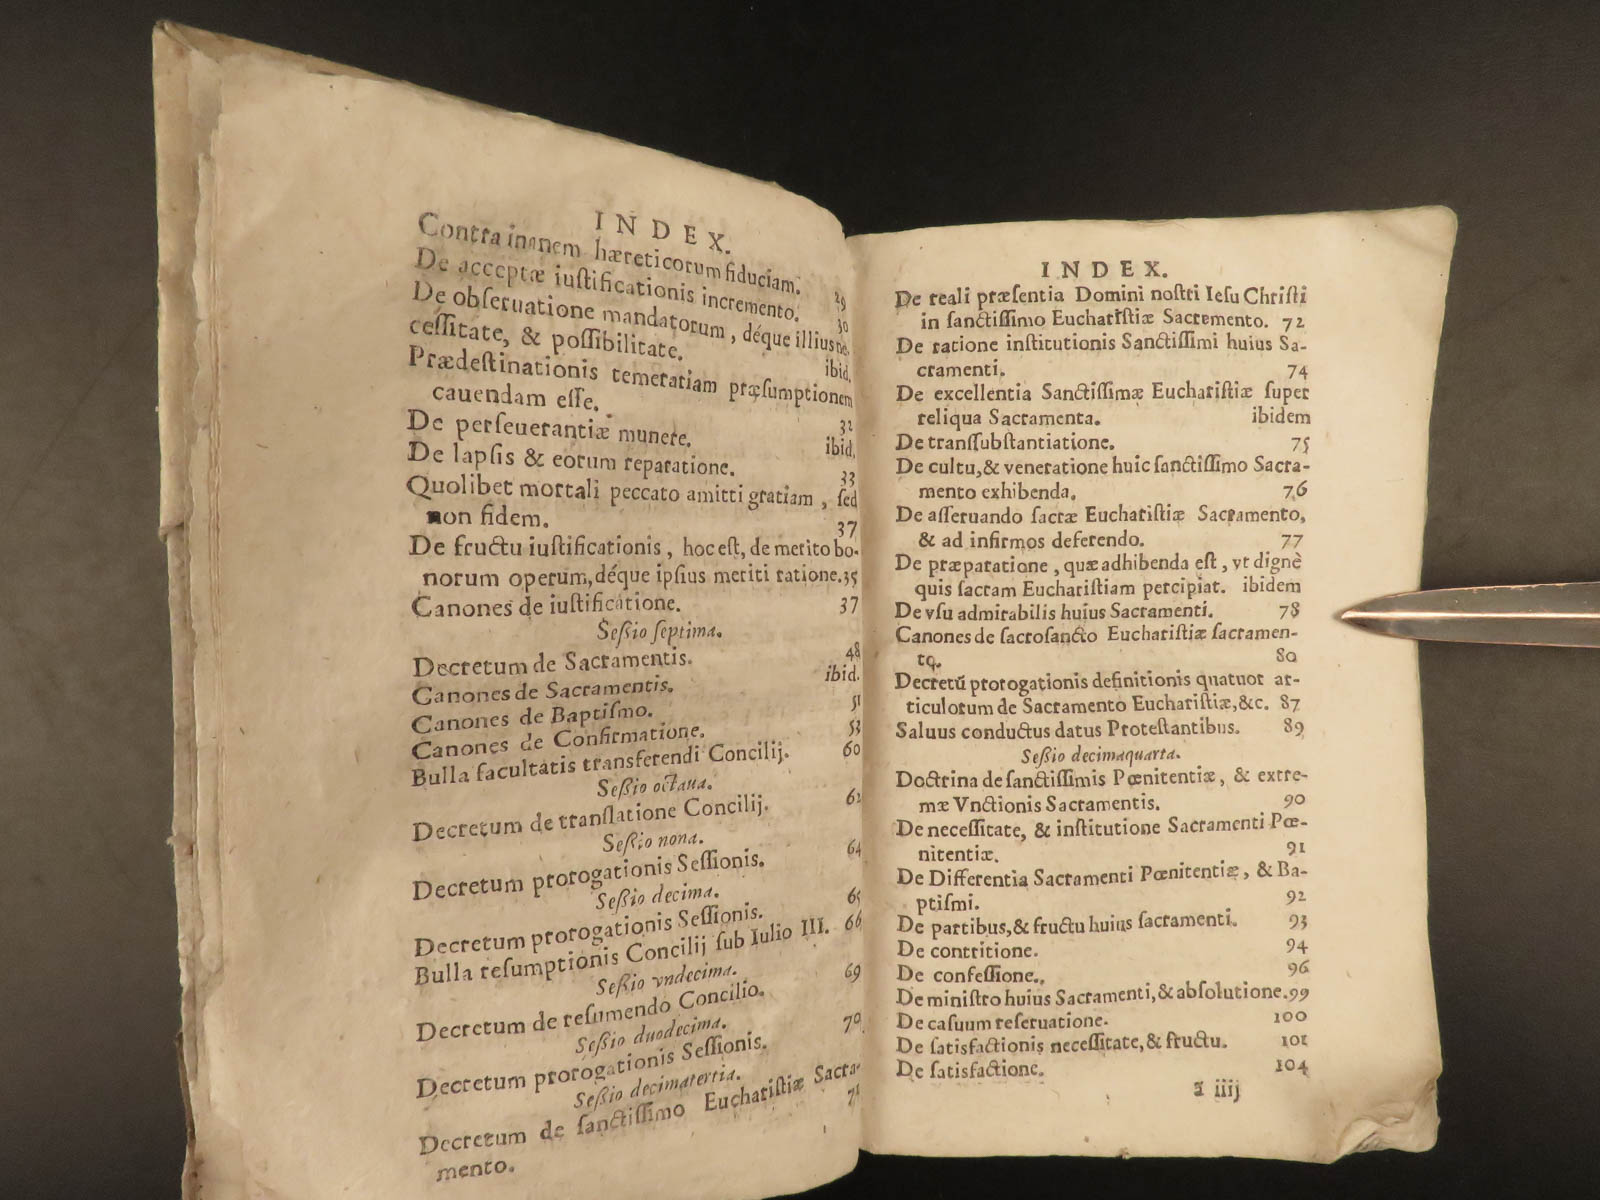 INDEX.
Contra inanem hæreticorum fiduciam. 29
De acceptæ iuſtificationis incremento. 30
De obſeruatione mandatorum, déque illius ne-
ceſſitate, & poſſibilitate. ibid.
Prædeſtinationis temerariam præſumptionem
cauendam eſſe. 32
De perſeuerantiæ munere. ibid.
De lapſis & eorum reparatione. 33
Quolibet mortali peccato amitti gratiam, ſed
non fidem. 37
De fructu iuſtificationis, hoc eſt, de merito bo-
norum operum, déque ipſius meriti ratione. 35
Canones de iuſtificatione. 37
Seßio ſeptima.
Decretum de Sacramentis. 48
Canones de Sacramentis. ibid.
Canones de Baptiſmo. 51
Canones de Confirmatione. 53
Bulla facultatis transferendi Concilij. 60
Seßio octaua.
Decretum de tranſlatione Concilij. 62
Seßio nona.
Decretum prorogationis Seſſionis. 64
Seßio decima.
Decretum prorogationis Seſſionis. 65
Bulla reſumptionis Concilij ſub Iulio III. 66
Seßio vndecima.
Decretum de reſumendo Concilio. 69
Seßio duodecima.
Decretum prorogationis Seſſionis. 70
Seßio decimatertia.
Decretum de ſanctiſſimo Euchariſtiæ Sacra-
mento. 71
INDEX.
De reali præſentia Domini noſtri Ieſu Chriſti
in ſanctiſſimo Euchariſtiæ Sacremento. 72
De ratione inſtitutionis Sanctiſſimi huius Sa-
cramenti. 74
De excellentia Sanctiſſimæ Euchariſtiæ ſuper
reliqua Sacramenta. ibidem
De tranſſubſtantiatione. 75
De cultu, & veneratione huic ſanctiſſimo Sacra-
mento exhibenda. 76
De aſſeruando ſacræ Euchariſtiæ Sacramento,
& ad infirmos deferendo. 77
De præparatione, quæ adhibenda eſt, vt dignè
quis ſacram Euchariſtiam percipiat. ibidem
De vſu admirabilis huius Sacramenti. 78
Canones de ſacroſancto Euchariſtiæ ſacramen-
to. 80
Decretū prorogationis definitionis quatuor ar-
ticulorum de Sacramento Euchariſtiæ, &c. 87
Saluus conductus datus Proteſtantibus. 89
Seßio decimaquarta.
Doctrina de ſanctiſſimis Pœnitentiæ, & extre-
mæ Vnctionis Sacramentis. 90
De neceſſitate, & inſtitutione Sacramenti Pœ-
nitentiæ. 91
De Differentia Sacramenti Pœnitentiæ, & Ba-
ptiſmi. 92
De partibus, & fructu huius ſacramenti. 93
De contritione. 94
De confeſſione. 96
De miniſtro huius Sacramenti, & abſolutione. 99
De caſuum reſeruatione. 100
De ſatisfactionis neceſſitate, & fructu. 101
De ſatisfactione. 104
a iiij